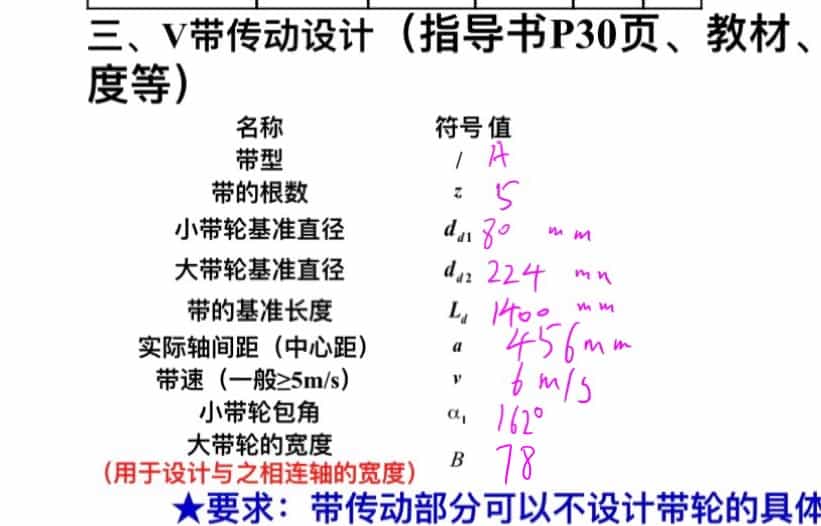 三、V带传动设计（指导书P30页、教材、
度等）
名称 符号 值
带型 / A
带的根数 z 5
小带轮基准直径 dd1 80 mm
大带轮基准直径 dd2 224 mm
带的基准长度 Ld 1400 mm
实际轴间距（中心距） a 456mm
带速（一般≥5m/s） v 6 m/s
小带轮包角 α1 162°
大带轮的宽度
（用于设计与之相连轴的宽度） B 78
★要求：带传动部分可以不设计带轮的具体